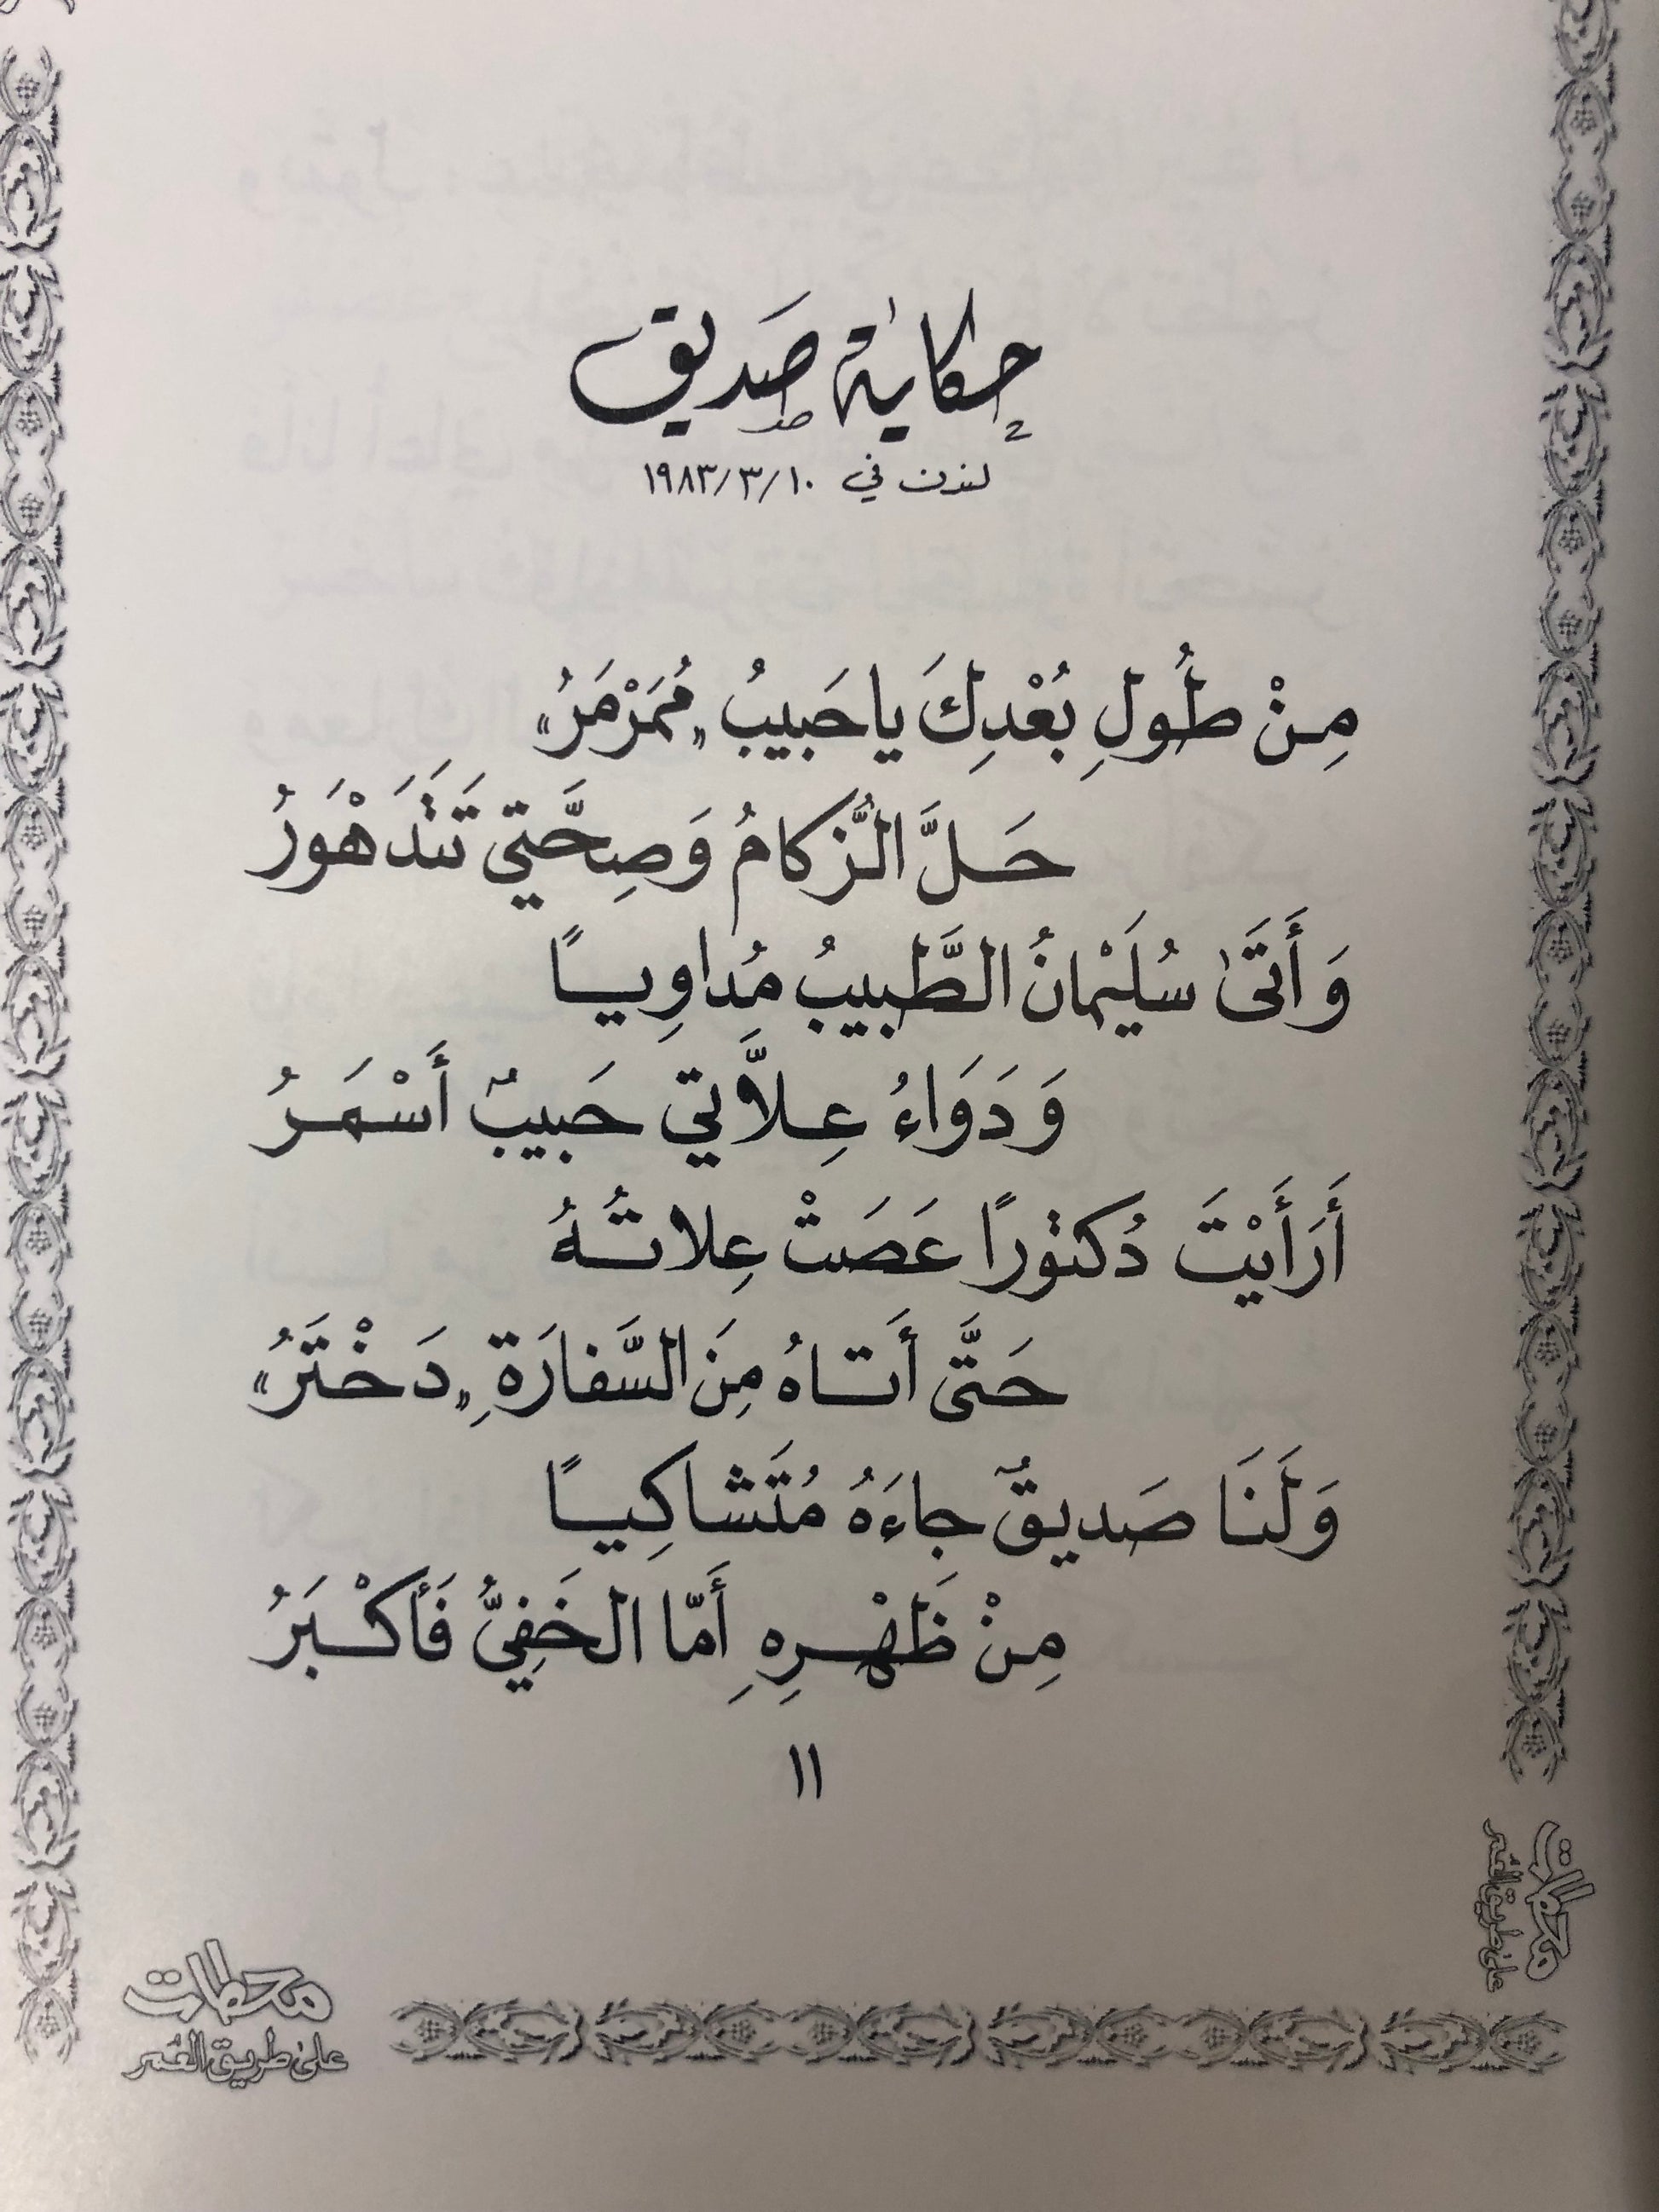 حكاية صديق
لندن في ١٩٨٣/٣/١٠
مِنْ طُولِ بُعْدِكَ يا حَبيبُ «مُمَرْمَرُ»
حَلَّ الزُّكامُ وَصِحَّتي تَتَدَهْوَرُ
وَأَتَىٰ سُلَيْمانُ الطَّبيبُ مُداوِيـــاً
وَدَوَاءُ عِـلاَّتي حَبيبٌ أَسْمَـرُ
أَرَأَيْتَ دُكتوراً عَصَتْ عِلاتُـهُ
حَتَّى أَتـاهُ مِنَ السَّفارَةِ «دَخْتَرُ»
وَلَنَا صَديقٌ جاءَهُ مُتَشاكِيـــاً
مِنْ ظَهْـرِهِ أَمّا الخَفِيُّ فَأَكْـبَرُ
١١
محطات
على طريق العُمر
محطات
على طريق العُمر